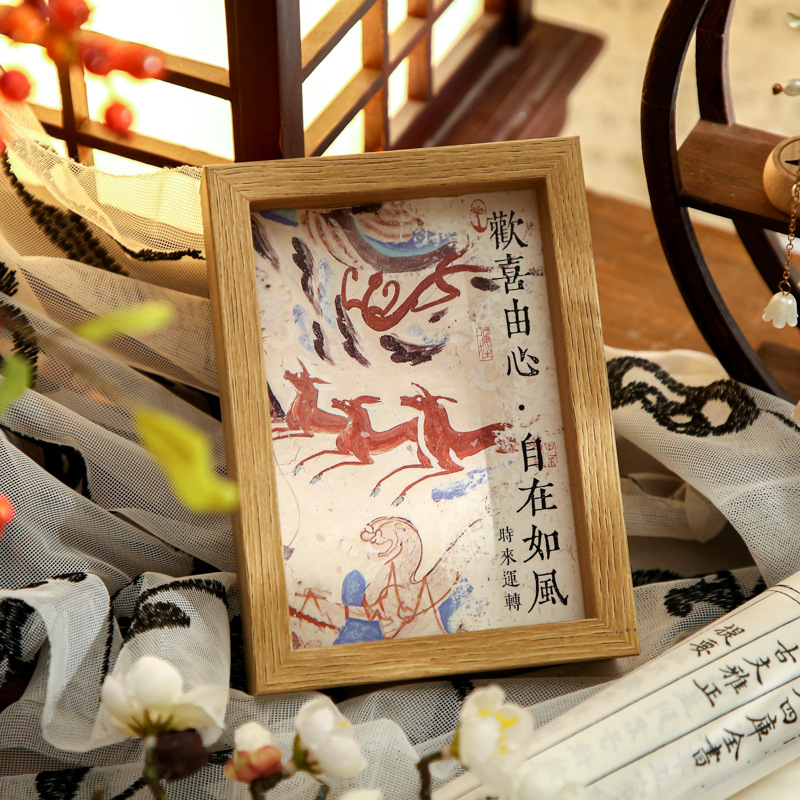 歡喜由心·自在如風
時來運轉
四庫全書
古文雅正